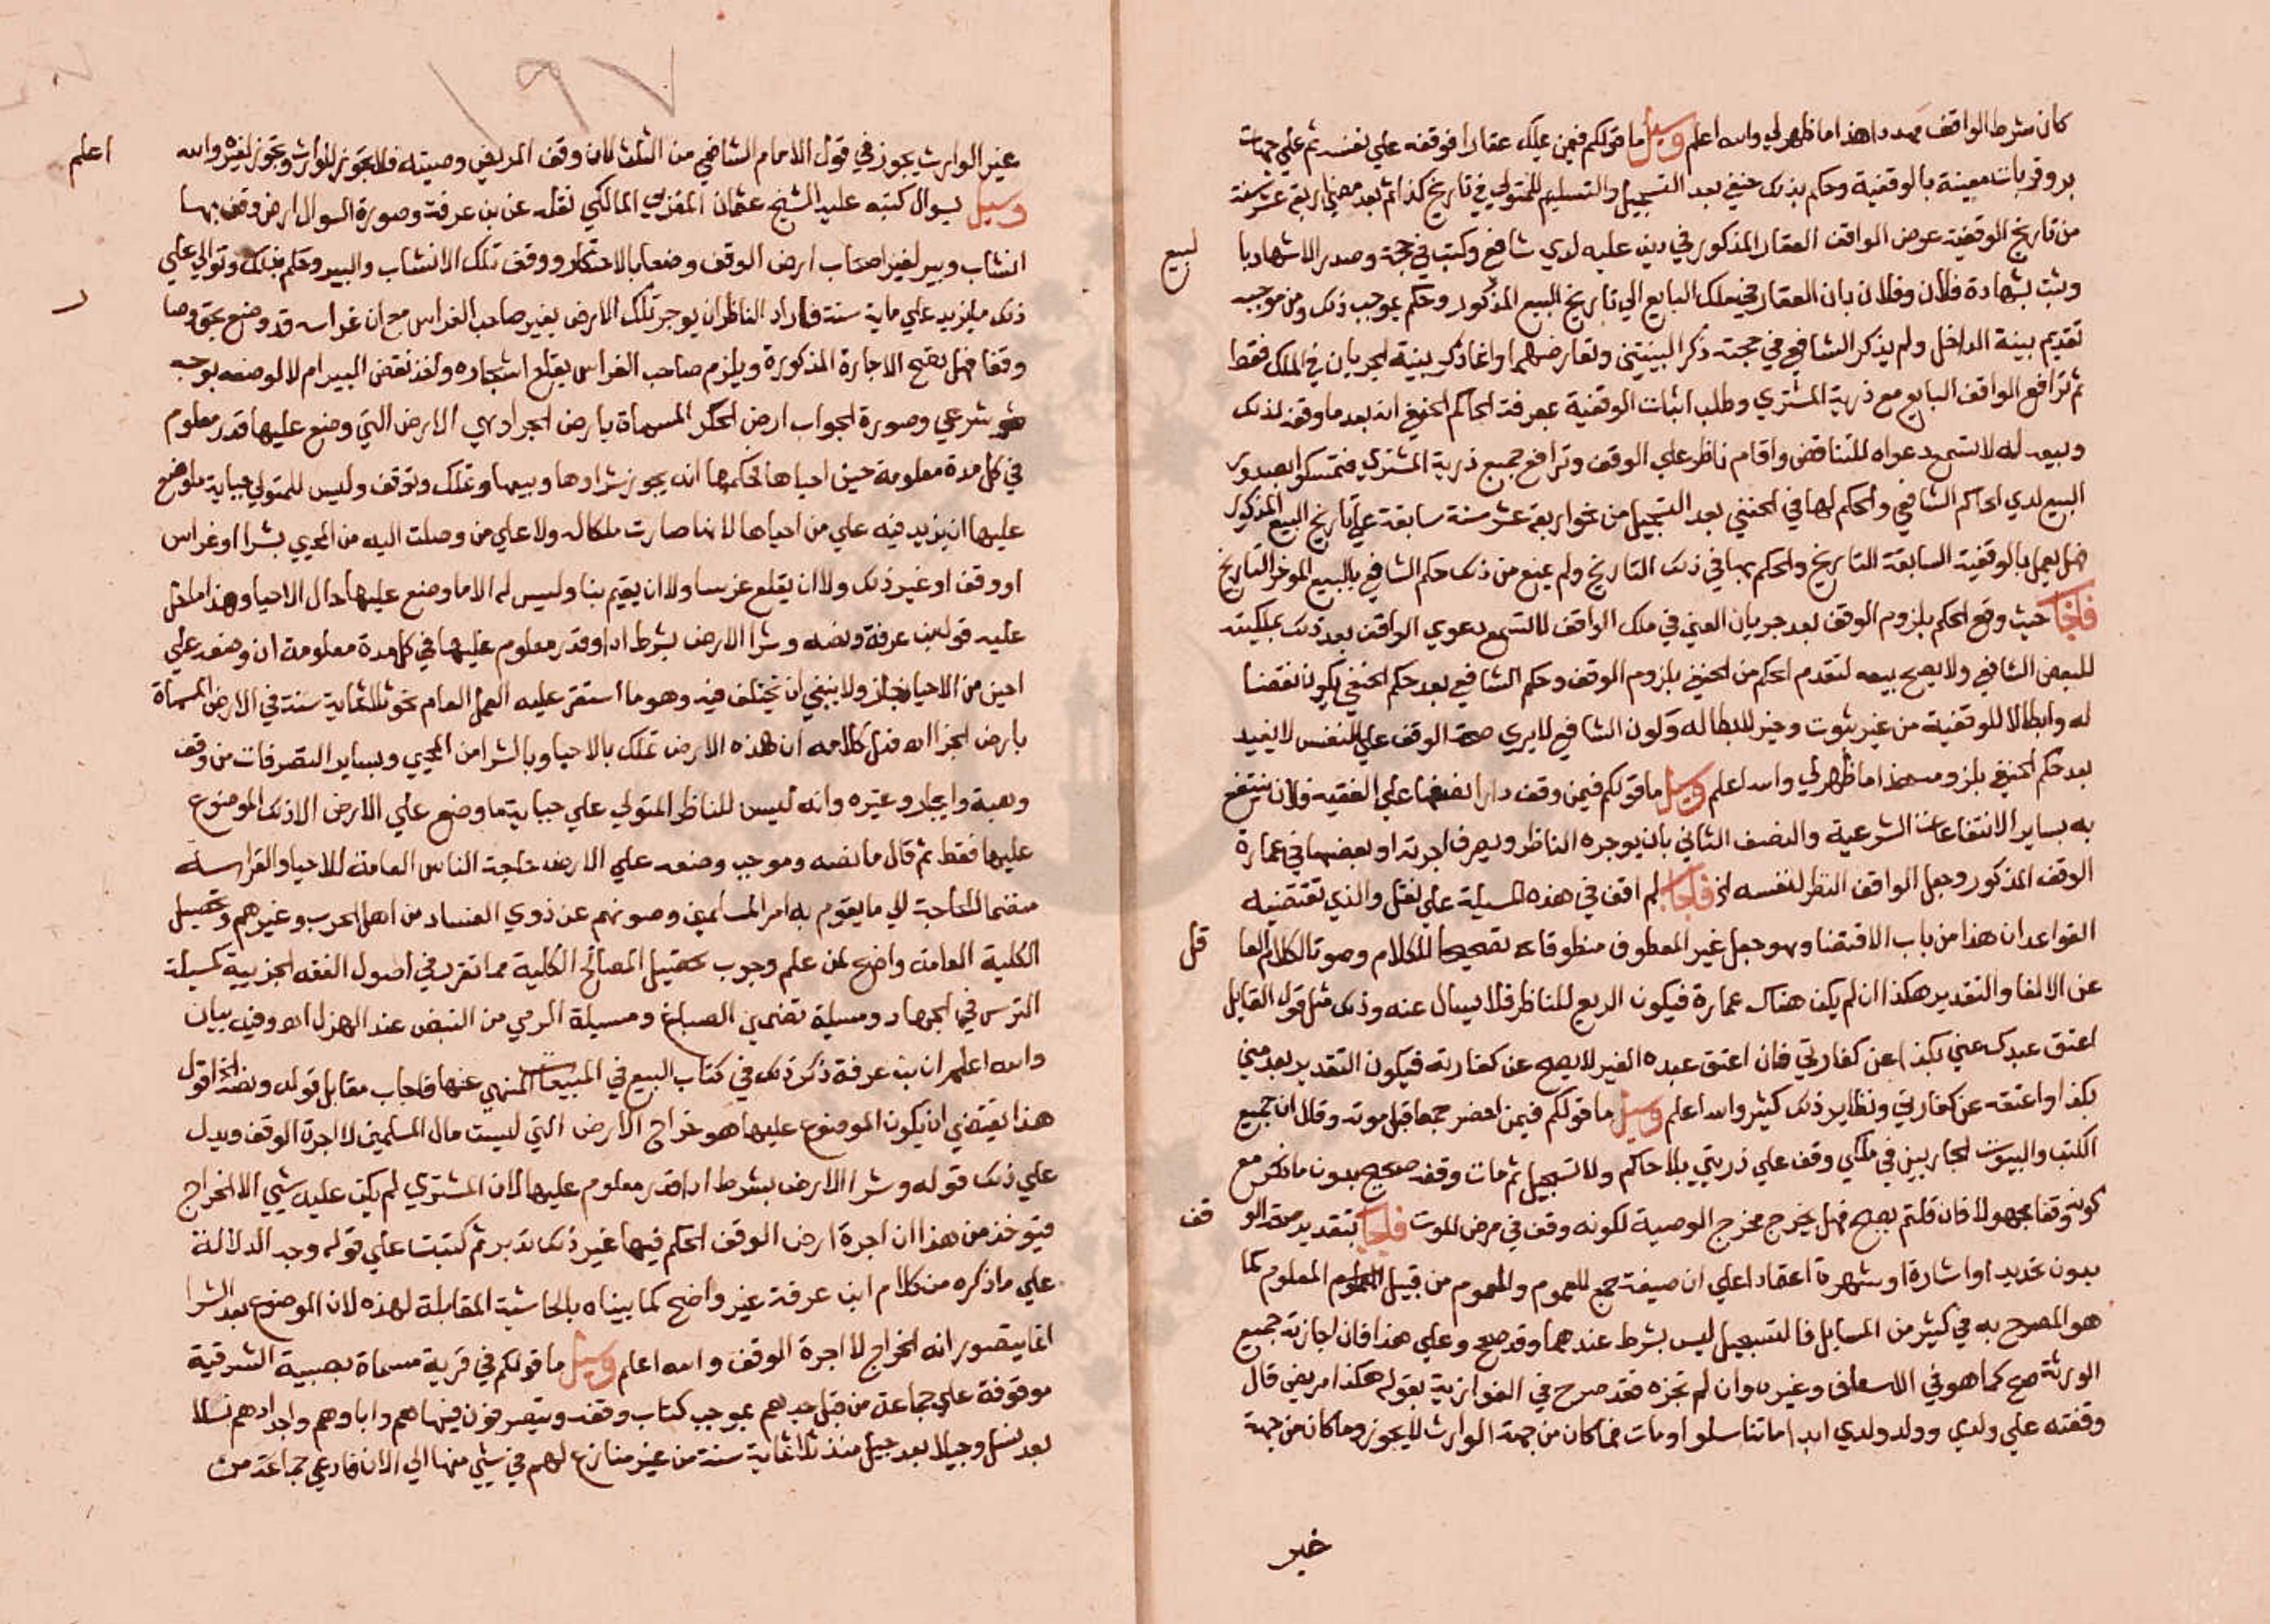 كان شرط الواقف مهددا هذا ما ظهر لي والله اعلم وسيل ما قولكم فيمن يملك عقارا فوقفه علي نفسه ثم علي جهات
بر وقربات معينة بالوقفية وحكم بذلك حنفي بعد التسجيل والتسليم للمتولي في تاريخ كذا ثم بعد مضي اربعة عشر سنة
من تاريخ الوقفية عوض الواقف العقار المذكور في دين عليه لدي شافعي وكتب في حجة وصدر الاشهاد با
لبيع
وثبت بشهادة فلان وفلان بان العقار في ملك البايع الي تاريخ البيع المذكور وحكم بموجب ذلك ومن موجبه
تقديم بينة الداخل ولم يذكر الشافعي في حجته ذكر البينتين وتعارضهما وانما ذكر بينة الجريان في الملك فقط
ثم ترافع الواقف البايع مع ذرية المشتري وطلب اثبات الوقفية بمعرفة الحاكم الحنفي انه بعد ما وقفه لذلك
وبيعه له لا تسمع دعواه للتناقض واقام ناظر علي الوقف وترافع جميع ذرية المشتري فتمسكوا بصدور
البيع لدي الحاكم الشافعي والحكم لها في الحنفي بعد التسجيل من نحو اربعة عشر سنة سابقة علي تاريخ البيع المذكور
فهل يعمل بالوقفية السابقة التاريخ والحكم بها في ذلك التاريخ ولم يمنع من ذلك حكم الشافعي بالبيع الموخر التاريخ
فاجاب حيث وقع الحكم بلزوم الوقف بعد جريان العين في ملك الواقف لا تسمع دعوي الواقف بعد ذلك بملكيته
للبعض الشافعي ولا يصح بيعه لتقدم الحكم من الحنفي بلزوم الوقف وحكم الشافعي بعد حكم الحنفي يكون نقضا
له وابطالا للوقفية من غير ثبوت وخير لابطاله وكون الشافعي لا يري صحة الوقف علي النفس لا يفيد
بعد حكم الحنفي بلزومه هذا ما ظهر لي والله اعلم وسيل ما قولكم فيمن وقف دارا نصفها علي الفقيه فلان ينتفع
به بساير الانتفاعات الشرعية والنصف الثاني بان يوجره الناظر ويصرف اجرته او بعضها في عمارة
الوقف المذكور وجعل الواقف النظر لنفسه الخ فاجاب لم اقف في هذه المسيلة علي نقل والذي تقتضيه
القواعد ان هذا من باب الاقتضا وهو جعل غير المنطوق منطوقا به تصحيحا للكلام وصونا لكلام العا
قل
عن الالغا والتقدير هكذا ان لم يكن هناك عمارة فيكون الريع للناظر فلا يسال عنه وذلك مثل قول القايل
اعتق عبدك عني بكذا عن كفارتي فان اعتق عبده الغير لا يصح عن كفارته فيكون التقدير بعد مني
بكذا واعتقه عن كفارتي ونظاير ذلك كثير والله اعلم وسيل ما قولكم فيمن احضر جمعا قبل موته وقال ان جميع
الكتب والبيوت الجاريين في ملكي وقف علي ذريتي بلا حاكم ولا تسجيل ثم مات وقفه صحيح بدون ما ذكر مع
كونه وقفا مجهولا فان قلتم بصح فهل يخرج مخرج الوصية لكونه وقف في مرض الموت فاجاب بتقدير صحة الو
قف
بدون تحديد او اشارة او شهرة اعتمادا علي ان صيغة جمع للعموم والعموم من قبيل المعلوم كما
هو المصرح به في كثير من المسايل فالتسجيل ليس بشرط عندهما وقد صح وعلي هذا فان اجازته جميع
الورثة صح كما هو في الاسعاف وغيره وان لم تجزه فقد صرح في البزازية بقوله هكذا مريض قال
وقفته علي ولدي وولد ولدي ابدا ما تناسلوا ومات فما كان من جهة الوارث لا يجوز وما كان من جهة
خير
١٩٧
غير الوارث يجوز في قول الامام الشافعي من الثلث لان وقف المريض وصيته فلا يجوز للوارث ويجوز لغيره والله
اعلم
وسيل بسوال كتبه عليه الشيخ عثمان المغربي المالكي نقله عن بن عرفة وصورة السوال ارض وقف بها
انشاب وبير لغير اصحاب ارض الوقف وضعا بالاحتكار ووقف تلك الانشاب والبير وحكم بذلك وتوالي علي
ذلك ما يزيد علي ماية سنة فاراد الناظر ان يوجر تلك الارض بغير صاحب الغراس مع ان غراسه قد وضع بحق وصا
ر
وقفا فهل تصح الاجارة المذكورة ويلزم صاحب الغراس بقلع اشجاره واخذ نقض البير ام لا لوضعه بوجه
شرعي وصورة الجواب ارض الحكر المسماة بارض الجرا وهي الارض التي وضع عليها قدر معلوم
في كل مدة معلومة حين احياها فحكمها انه يجوز شراوها وبيعها وتملك وتوقف وليس للمتولي جباية ما وضع
عليها ان يزيد فيه علي من احياها لانها صارت ملكا له ولا علي من وصلت اليه من المحيي بشرا او غراس
او وقف او غير ذلك ولا ان يقلع غرسا ولا ان يقيم بنا وليس له الا ما وضع عليها حال الاحيا وهذا ما دل
عليه قول بن عرفة ونصه وشرا الارض بشرط ادا وقدر معلوم عليها في كل مدة معلومة ان وضعه علي
احين من الاحيا جاز ولا ينبغي ان يختلف فيه وهو ما استقر عليه العمل العام نحو ثلثماية سنة في الارض المسماة
بارض الجرا اه فدل كلامه ان هذه الارض تملك بالاحيا وبالشرا من المحيي وبساير التصرفات من وقف
وهبة وايجار وغيره وانه ليس للناظر المتولي علي جباية ما وضع علي الارض الا ذلك الموضوع
عليها فقط ثم قال ما نصه وموجب وضعه علي الارض حاجة الناس العامة للاحيا والغراسة
منضما للحاجة الي ما يقوم به امر المسلمين وصونهم عن ذوي الفساد من اهل الحرب وغيرهم وتحصيل
الكلية العامة واضح لمن علم وجوب تحصيل المصالح الكلية مما تقرر في اصول الفقه الجزيية كمسيلة
الترس في الجهاد ومسيلة تضمين الصباغ ومسيلة الرمي من البعض عند الهزل اه وفيه بيان
والله اعلم ان بن عرفة ذكر ذلك في كتاب البيع في المبيعات المنهي عنها فاجاب مقابل قوله ونصه اقول
هذا يقتضي ان يكون الموضوع عليها هو خراج الارض التي ليست مال المسلمين لا اجرة الوقف ويدل
علي ذلك قوله وشرا الارض بشرط ادا قدر معلوم عليها لان المشتري لم يكن عليه شيي الا الخراج
فيتوخذ من هذا ان اجرة ارض الوقف الحكم فيها غير ذلك تدبر ثم كتبت علي قوله وجه الدلالة
علي ما ذكره من كلام ابن عرفة غير واضح كما بيناه بالحاشية المقابلة لهذه لان الموضوع بعد الشرا
انما يتصور انه الخراج لا اجرة الوقف والله اعلم وسيل ما قولكم في قرية مسماة بصبية الشرقية
موقوفة علي جماعة من قبل جدهم بموجب كتاب وقف ويتصرفون فيها هم واباوهم واجدادهم نسلا
بعد نسل وجيلا بعد جيل منذ ثلاثماية سنة من غير منازع لهم في شيي منها الي الان فادعي جماعة من